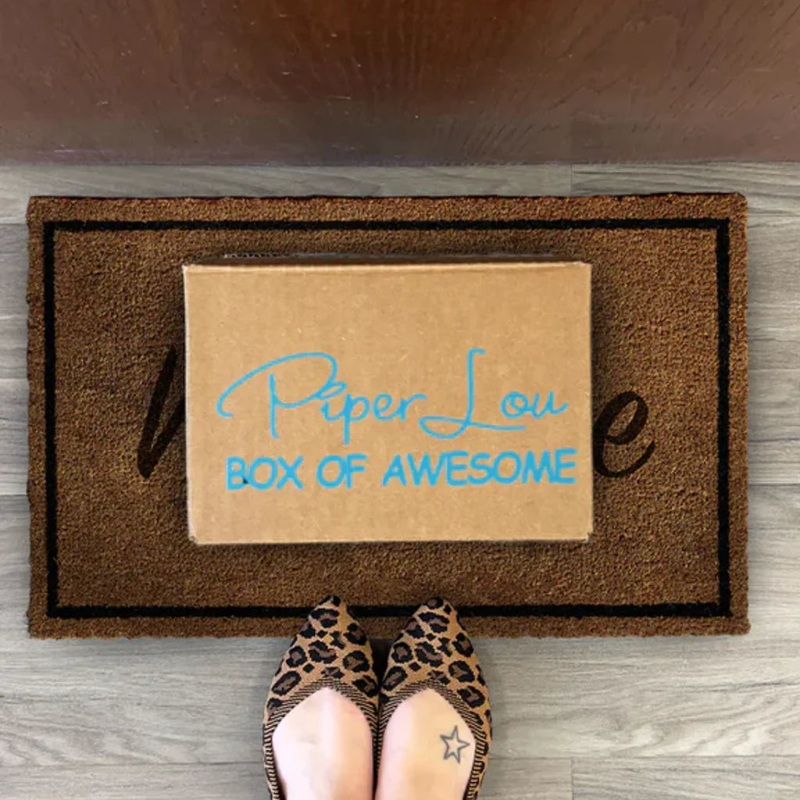 Piper Lou
BOX OF AWESOME